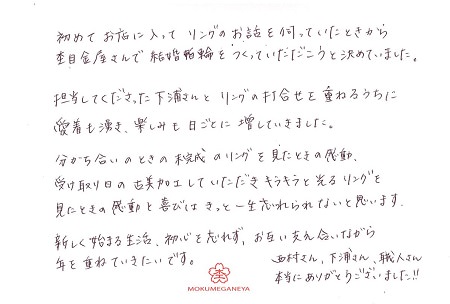 初めてお店に入ってリングのお話を伺っていたときから
杢目金屋さんで結婚指輪をつくっていただこうと決めていました。
担当してくださった下浦さんとリングの打合せを重ねるうちに
愛着も湧き、楽しみも日ごとに増していきました。
分かち合いのときの未完成のリングを見たときの感動、
受け取り日の古美加工していただきキラキラと光るリングを
見たときの感動と喜びはきっと一生忘れられないと思います。
新しく始まる生活、初心を忘れず、お互い支え合いながら
年を重ねていきたいです。
西村さん、下浦さん、職人さん
本当にありがとうございました!!
MOKUMEGANEYA